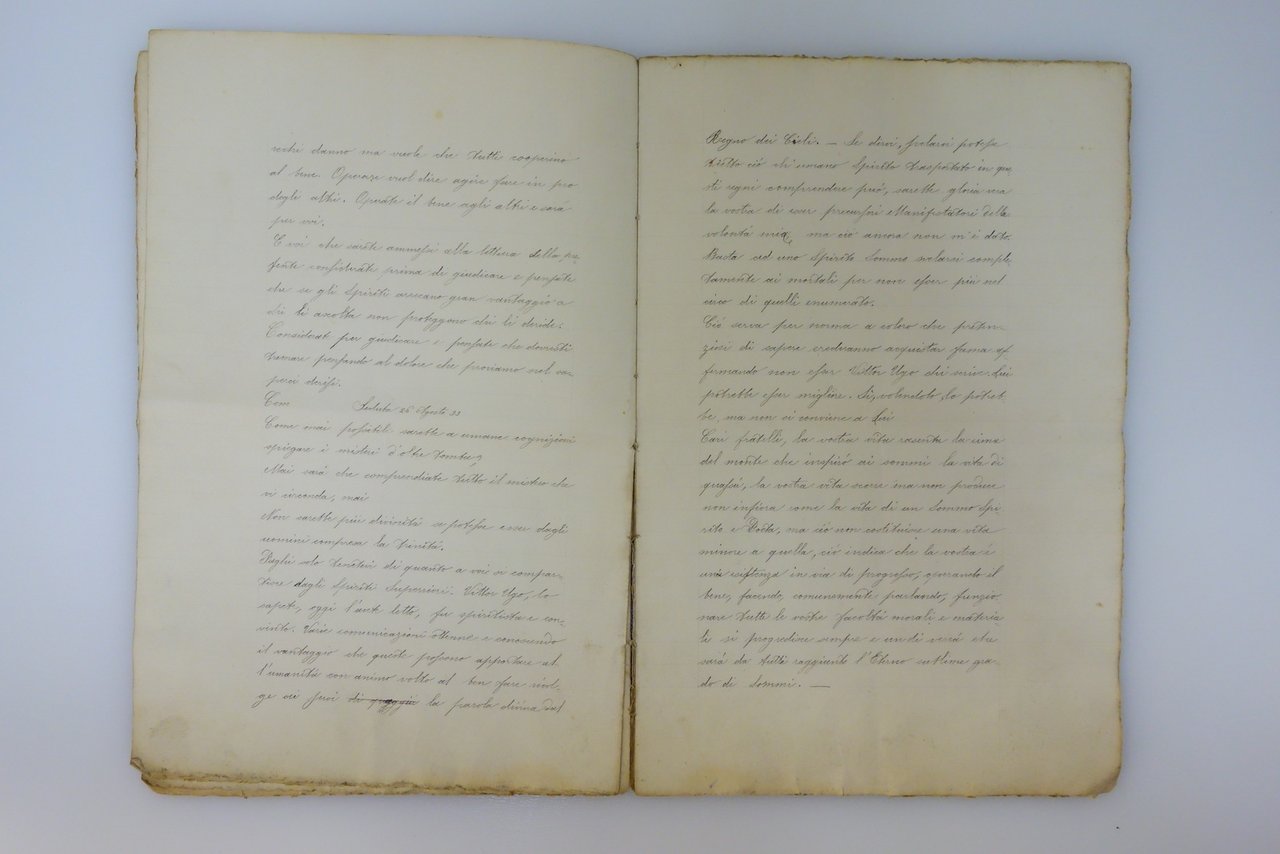 rechi danno ma vuole che tutti cooperino
al bene. Operare vuol dire agire fare in pro
degli altri. Operate il bene agli altri e sarà
per voi.
E voi che sarete ammessi alla lettura della pre
sente confutate prima di giudicare e pensate
che se gli Spiriti arrecano gran vantaggio a
chi li ascolta non proteggono chi li deride.
Considerat per giudicare e pensate che dovresti
tremare pensando al dolore che proviamo nel
derisi.
Com Seduta 26 Agosto 33
Come mai possibil sarebbe a umane cognizioni
spiegare i misteri d'oltre tomba?
Mai sarà che comprendiate tutto il mistero che
vi circonda, mai
Non sarebbe più divinità se potesse esser dagli
uomini compresa la Trinità.
solo tenetevi di quanto a voi si compar-
tisce dagli Spiriti Superiori. Vittor Ugo, lo
sapete, oggi l'avete letto, fu spiritista e con-
vinto. Varie comunicazioni ottenne e conoscendo
il vantaggio che queste possono apportare al-
l'umanità con animo volto al ben fare rivol-
ge ai suoi di quaggiù la parola divina dal
Regno dei Cieli. — Se dirvi, svelarvi potesse
tutto ciò che umano Spirito trasportato in que
sti regni comprendere può, sarebbe gloria vera
la vostra di esser precursori Manifestatori della
volontà mia, ma ciò ancora non m'è dato.
Basta ad uno Spirito Sommo svelarsi comple-
tamente ai mortali per non esser più nel
circo di quelli enumerato.
Ciò serva per norma a coloro che preten-
ziosi di sapere crederanno acquistar fama af-
fermando non esser Vittor Ugo chi scrive. Lui
potrebbe esser migliore. Sì, volendolo, lo potreb-
be, ma non ci conviene a Lui
Cari fratelli, la vostra vita rasenta la cima
del monte che inspirò ai sommi la vita di
quassù, la vostra vita scorre ma non produce
non enfiora come la vita di un Sommo Spi-
rito e Poeta, ma ciò non costituisce una vita
minore a quella, ciò indica che la vostra è
una esistenza in via di progresso, operando il
bene, facendo, comunemente parlando, funzio-
nare tutte le vostre facoltà morali e materia
li si progredisce sempre e un dì verrà che
sarà da tutti raggiunto l'Eterno sublime gra-
do di Sommi. —